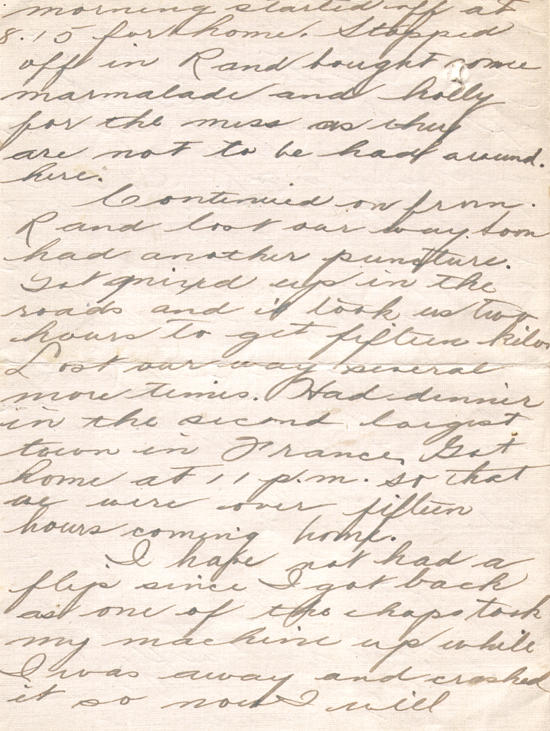 morning started off at
8.15 for home. Stopped
off in R and bought some
marmalade and holly
for the mess as they
are not to be had around.
here.
Continued on from.
R and lost our way. Soon
had another puncture.
Got mixed up in the
roads and it took us two
hours to get fifteen kilos
Lost our way several
more times. Had dinner
in the second largest
town in France. Got
home at 11 p.m. so that
we were over fifteen
hours coming home.
I have not had a
flip since I got back
as one of the chaps took
my machine up while
I was away and crashed
it so now I will